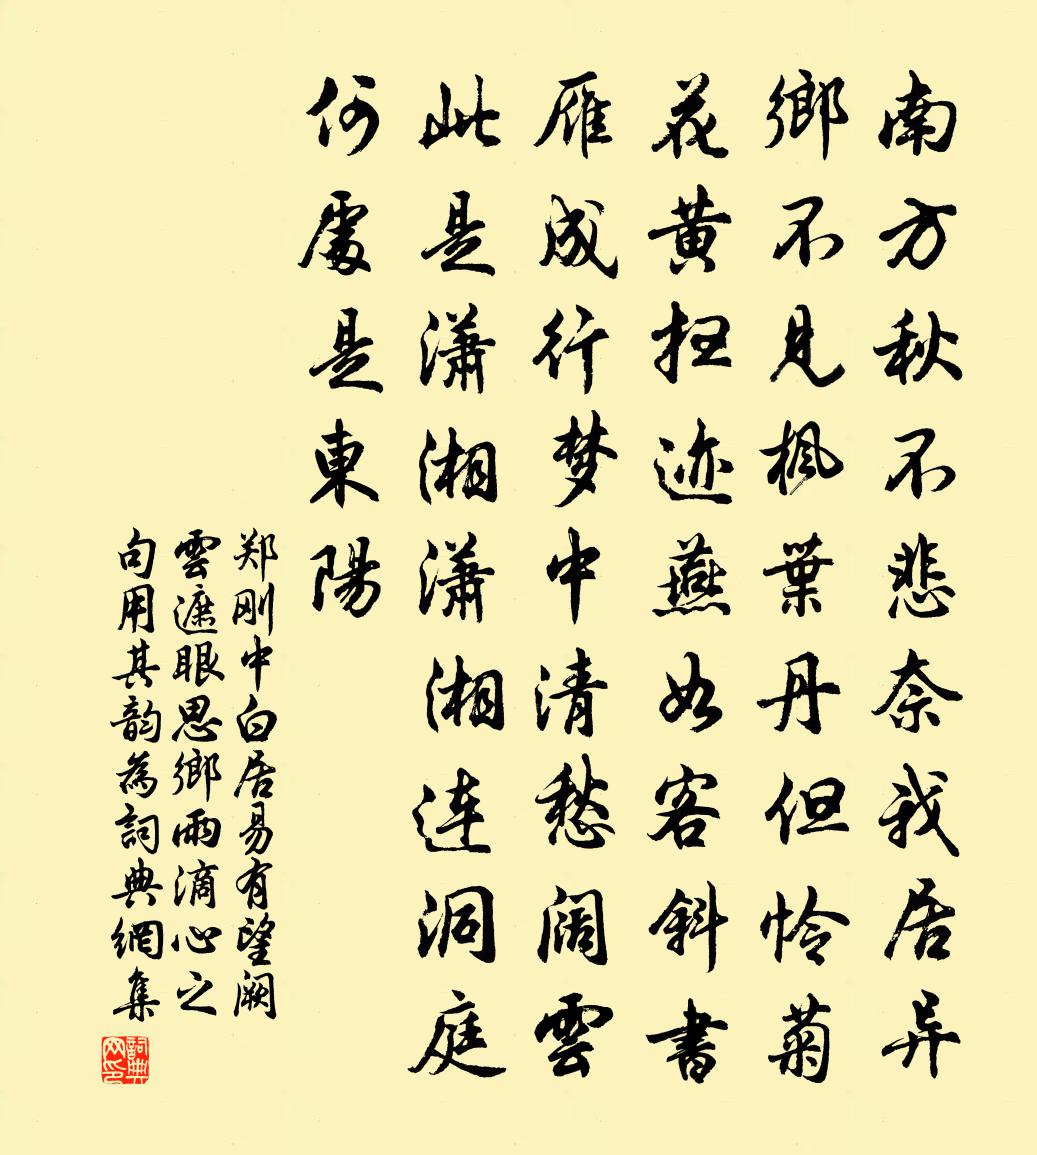 南方秋不悲奈我居异
鄉不見枫葉丹但怜菊
花黄扫迹燕如客斜書
雁成行梦中清愁阔雲
此是潇湘潇湘连洞庭
何處是東陽
郑刚中白居易有望阙
雲遮眼思鄉雨滴心之
句用其韵為詞典網集
詞典网印